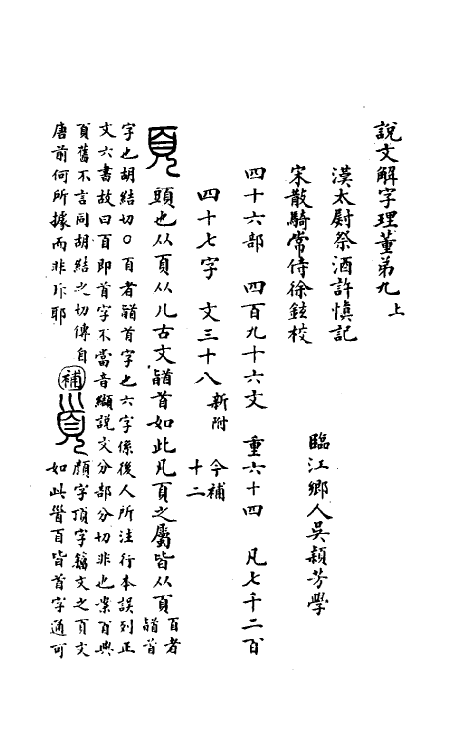 說文解字理董弟九上
漢太尉祭酒許慎記
宋散騎常侍徐鉉校
臨江鄉人吳穎芳學
四十六部 四百九十六文 重六十四 凡七千二百
四十七字 文三十八新附 今補十二
頁 頭也从𦣻从儿古文䭫首如此凡頁之屬皆从頁𦣻者䭫首
字也胡結切○𦣻者䭫首字也六字係後人所注行本誤列正
文六書故曰頁即首字不當音纈說文分部分切非也案𦣻與
頁舊不言同胡結之切傳自
唐前何所據而非斥耶
補 顏字頂字籀文之頁文
如此𥃩𦣻皆首字通可